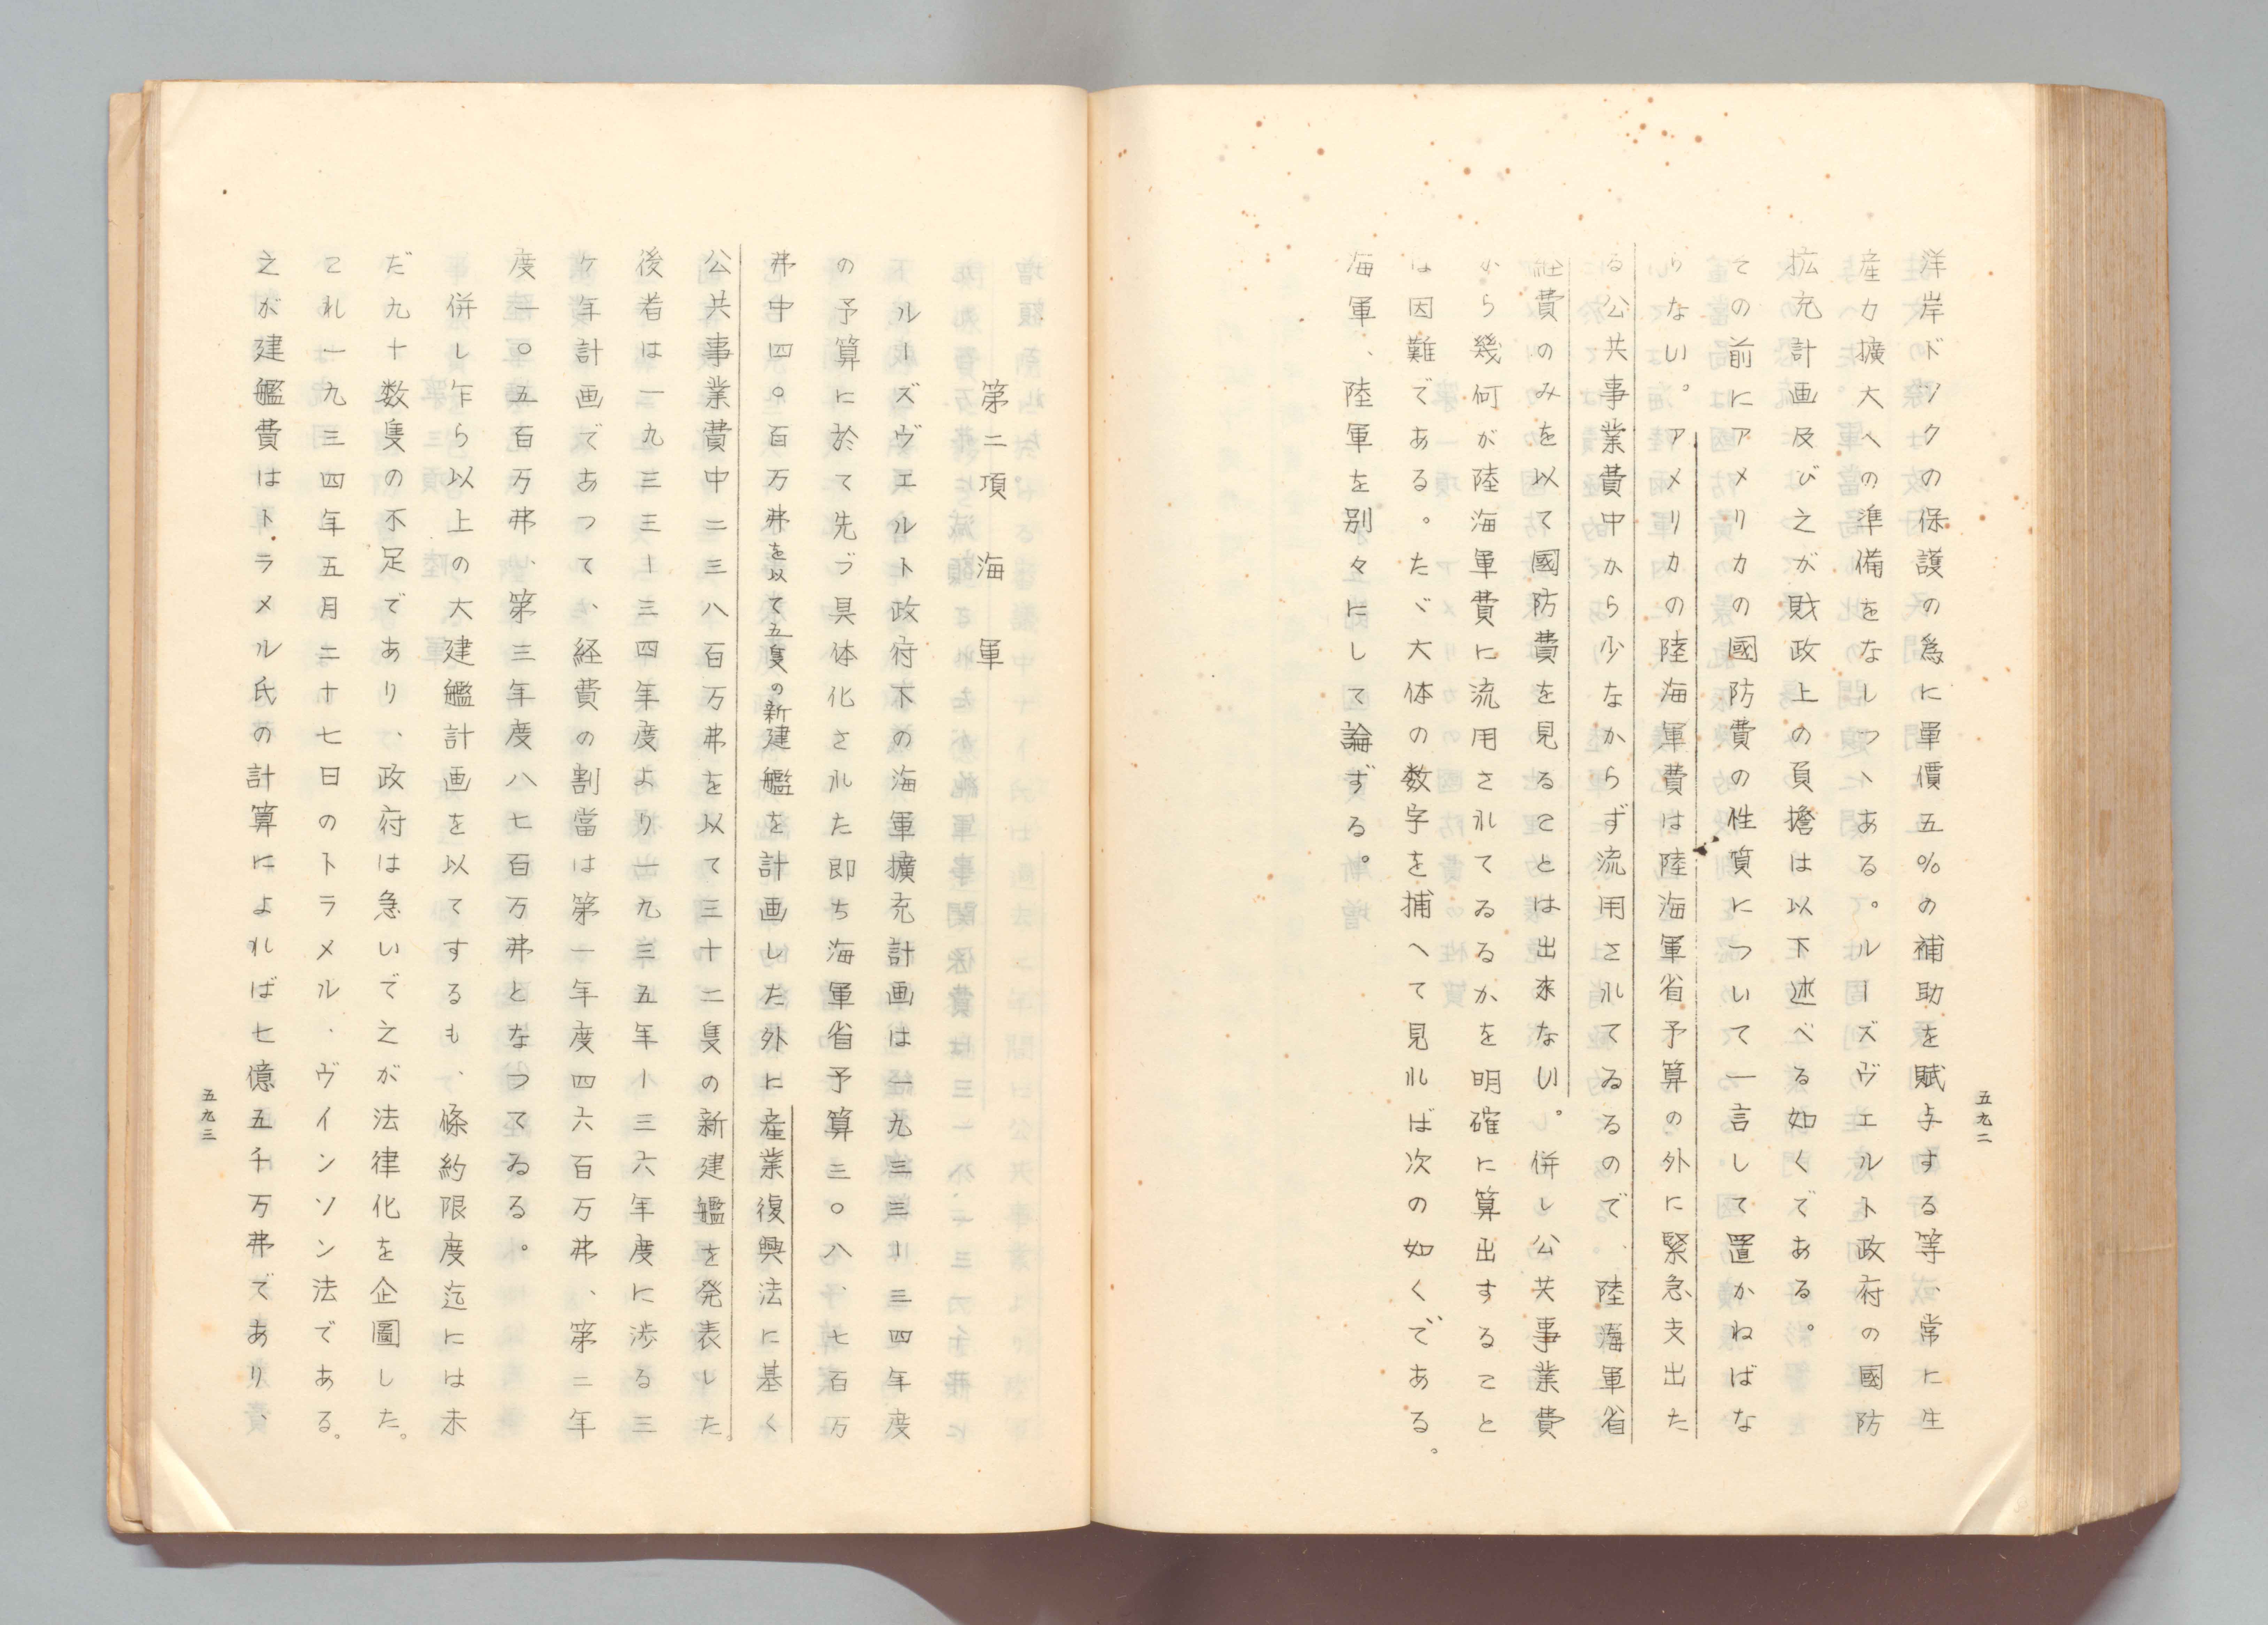 五九二
洋岸ドックの保護の為に軍價五％の補助を賦与する等、常に生
産力擴大への準備をなしつゝある。ルーズヴェルト政府の國防
拡充計画及び之が財政上の負擔は以下述べる如くである。
その前にアメリカの國防費の性質について一言して置かねばな
らない。アメリカの陸海軍費は陸海軍省予算の外に緊急支出た
る公共事業費中から少なからず流用されてゐるので、陸海軍省
経費のみを以て國防費を見ることは出來ない。併し公共事業費
から幾何が陸海軍費に流用されてゐるかを明確に算出すること
は因難である。たゞ大体の数字を捕へて見れば次の如くである。
海軍、陸軍を別々にして論ずる。
第二項　海　軍
ルーズヴェルト政府下の海軍擴充計画は一九三三ー三四年度
の予算に於て先づ具体化された即ち海軍省予算三〇八、七百万
弗中四〇百万弗を以て五隻の新建艦を計画した外に産業復興法に基く
公共事業費中二三八百万弗を以て三十二隻の新建艦を発表した。
後者は一九三三ー三四年度より一九三五年ー三六年度に渉る三
ヶ年計画であつて、経費の割當は第一年度四六百万弗、第二年
度一〇五百万弗、第三年度八七百万弗となつてゐる。
併し乍ら以上の大建艦計画を以てするも、條約限度迄には未
だ九十数隻の不足であり、政府は急いで之が法律化を企圖した。
これ一九三四年五月二十七日のトラメル・ヴインソン法である。
之が建艦費はトラメル氏の計算によれば七億五千万弗であり、
五九三